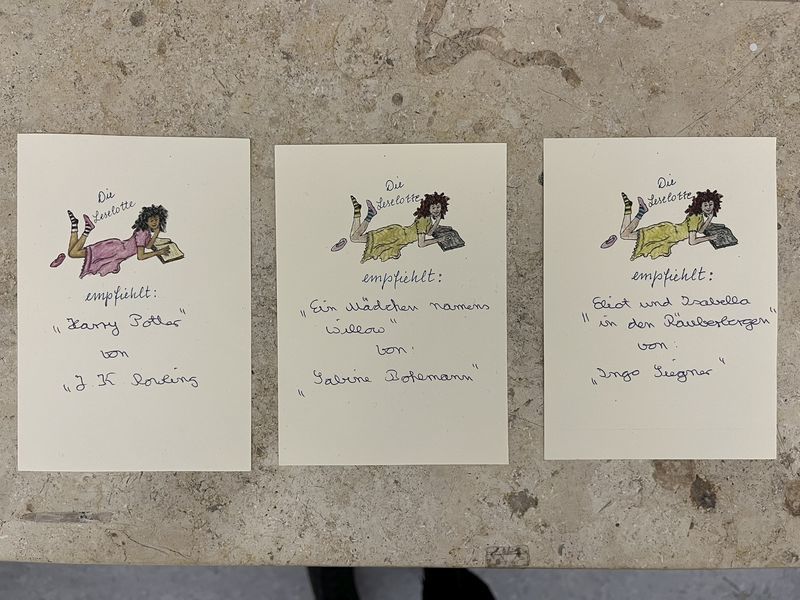 Die
Leselotte
empfiehlt:
"Harry Potter"
von
"J. K Rowling
Die
Leselotte
empfiehlt:
"Ein Mädchen namens
Willow"
von:
"Sabine Bohlmann"
Die
Leselotte
empfiehlt:
Eliot und Isabella
"in den Räuberbergen"
von:
"Ingo Siegner"